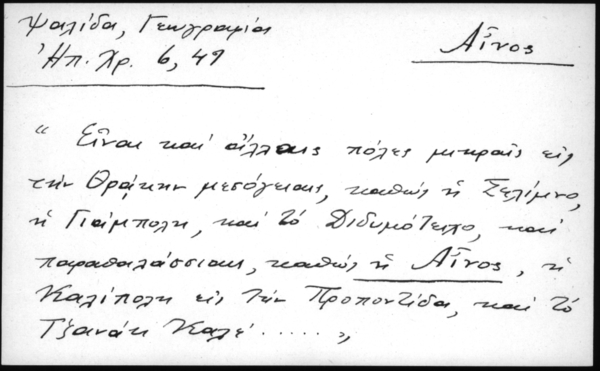 Ψαλίδα, Γεωγραφία
Ἠπ. Χρ. 6, 49
Αἶνος
“ Εἶναι καί ἄλλαις πόλες μικραῖς εἰς
τήν Θρᾴκην μεσόγειαις, καθώς ἡ Σελίμνο,
ἡ Γιάμπολη, καί τό Διδυμότειχο, καί
παραθαλάσσιαις, καθώς ἡ Αἶνος, ἡ
Καλίπολη εἰς τήν Προποντίδα, καί τό
Τζανάκ Καλέ ..... „